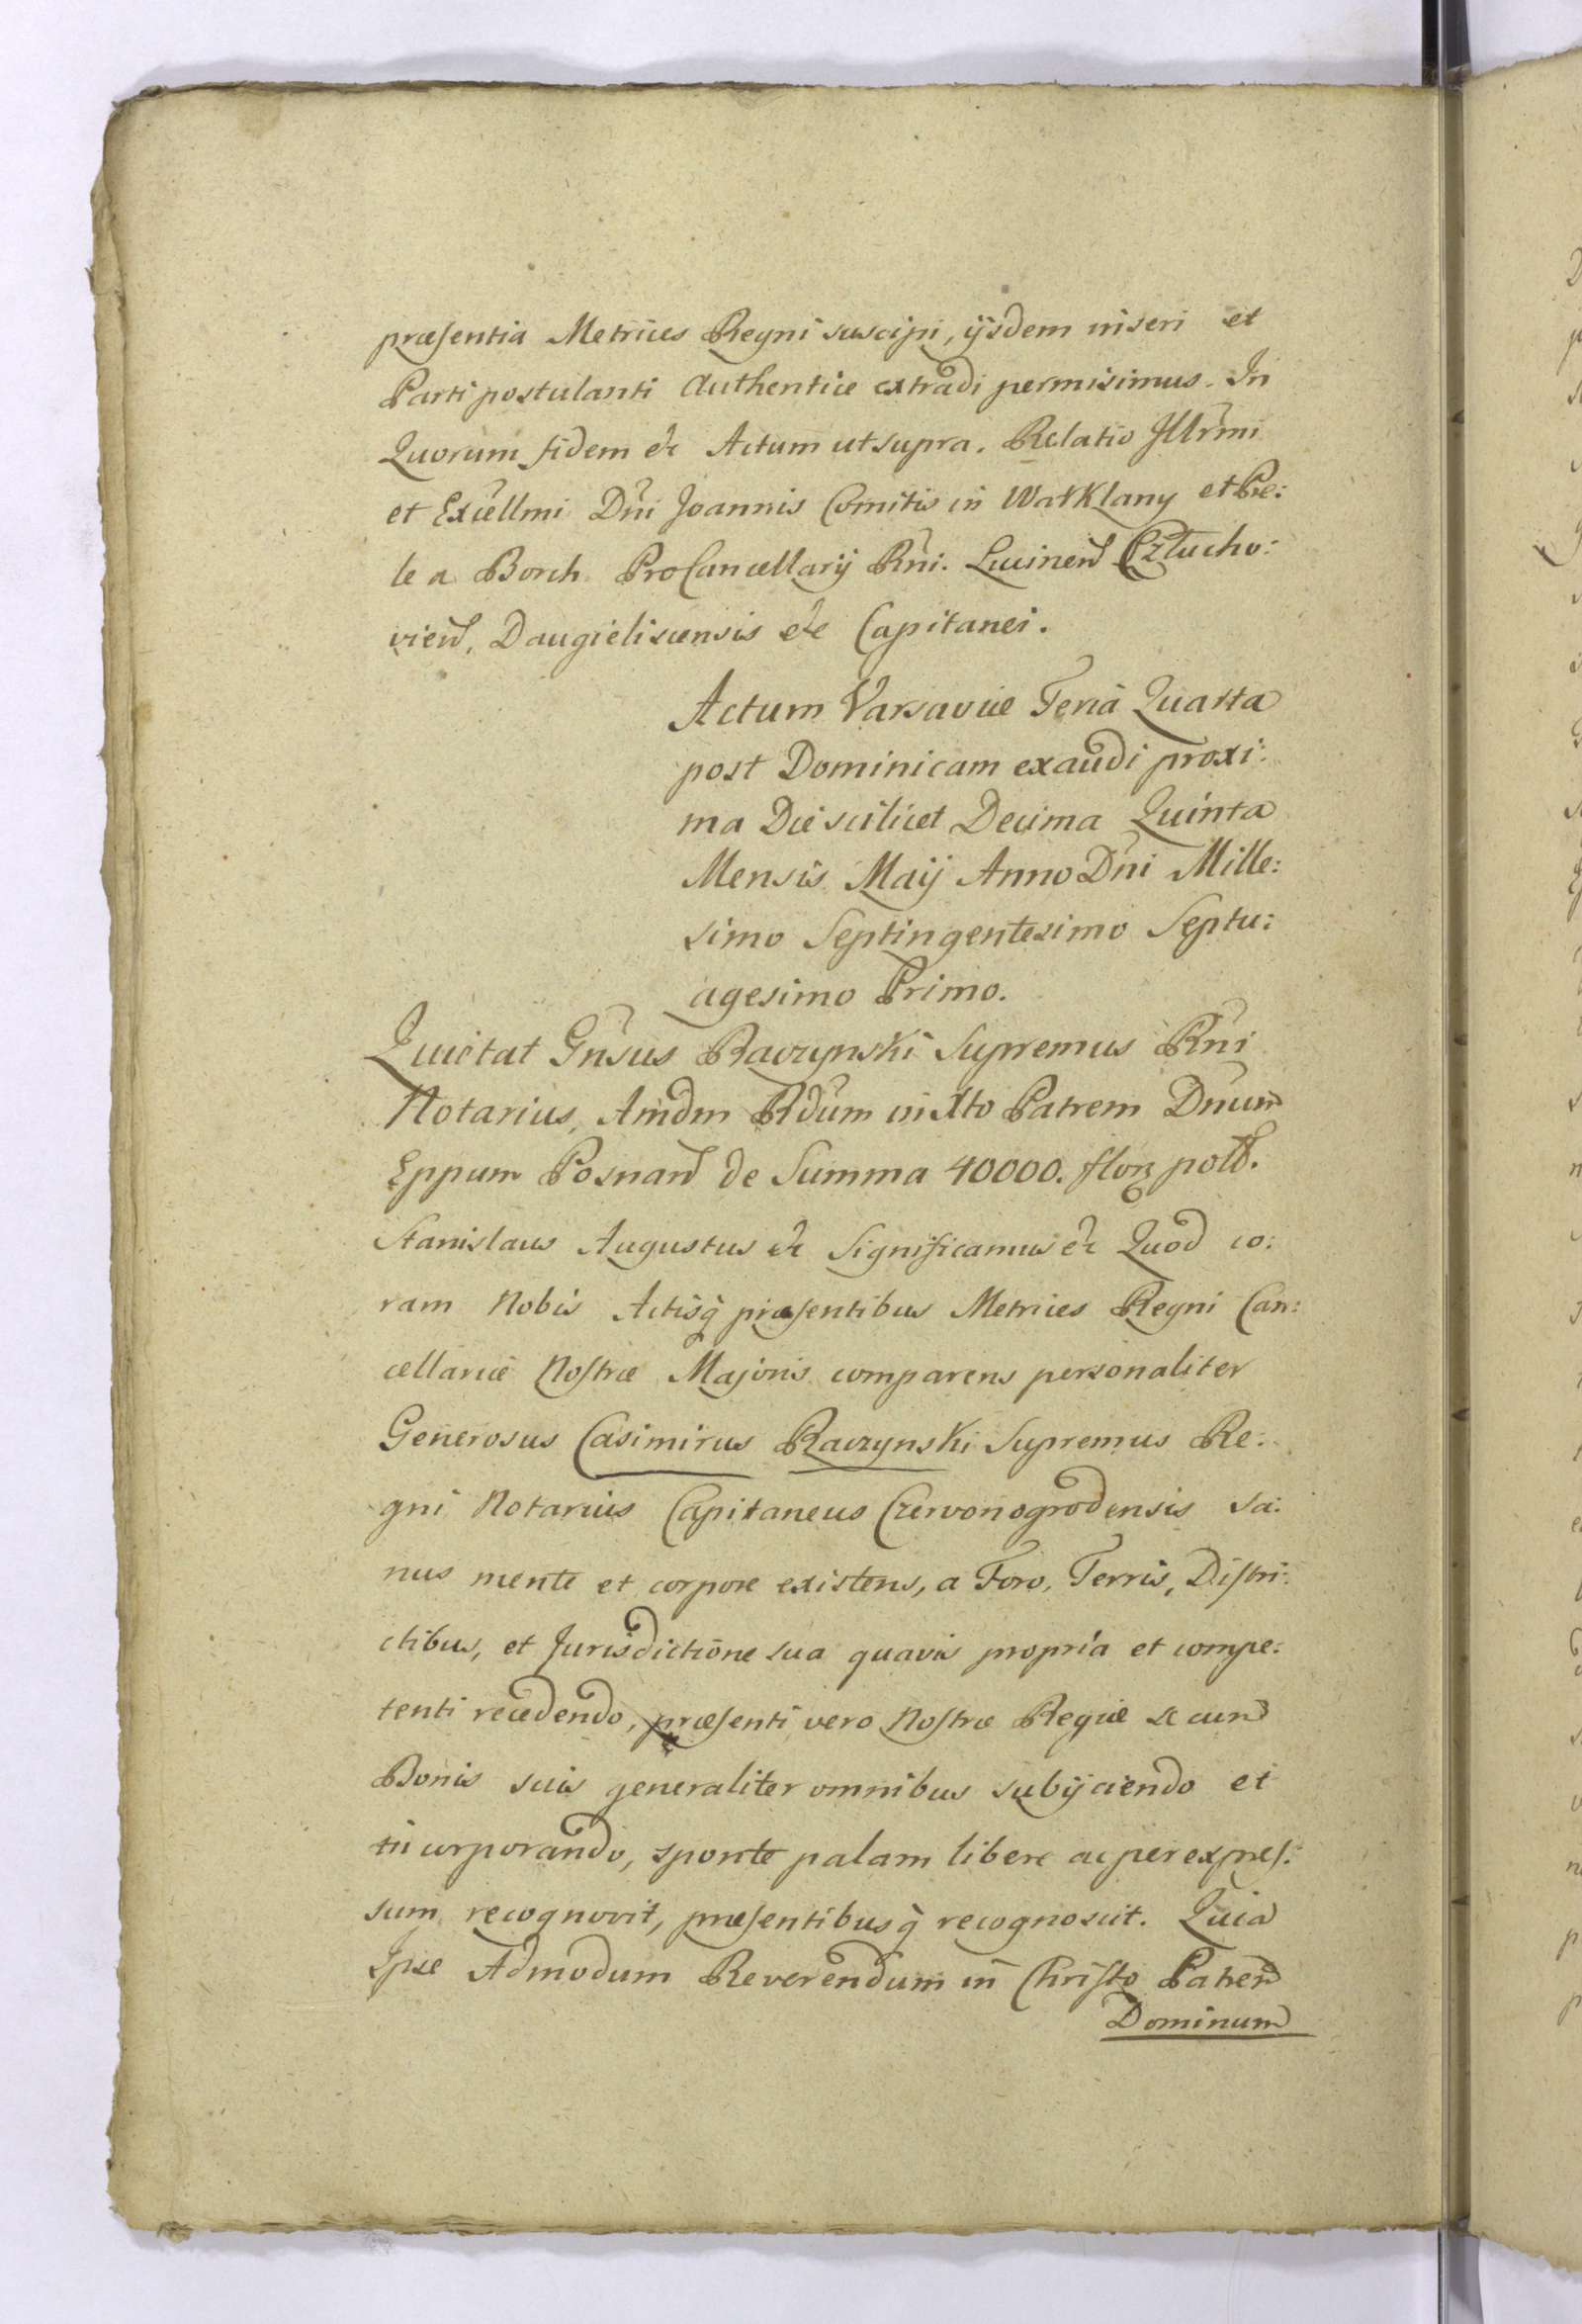 præsentia Metrices Regni suscipi, ijsdem inseri et
Parti postulanti Authentice extradi permisimus. In
Quorum fidem &c Actum ut supra. Relatio Jllrmi
et Excellmi Dni Joannis Comitis in Warklany et Pre:
le a Borch ProCancellarij Rni. Lucinen Człucho:
vien, Daugieliscensis &c Capitanei.
Actum Varsaviæ Feriâ Quarta
post Dominicam exaudi proxi:
ma Die scilicet Decima Quinta
Mensis Maij Anno Dni Mille:
simo Septingentesimo Septu:
agesimo Primo.
Quietat Gnsus Raczynski Supremus Rni
Notarius, Amdm Rdum in Xto Patrem Dnum
Eppum Posnan de Summa 40000. flor poll.
Stanislaus Augustus &c Significamus &c Quod co:
ram Nobis Actisq præsentibus Metrices Regni Can:
cellariæ Nostræ Majoris comparens personaliter
Generosus Casimirus Raczynski Supremus Re:
gni Notarius Capitaneus Czervonogrodensis sa:
nus mente et corpore existens, a Foro, Terris, Distri:
ctibus, et Jurisdictione sua quavis propria et compe:
tenti recedendo, præsenti vero Nostræ Regiæ se cum
Bonis suis generaliter omnibus subijciendo et
incorporando, sponte palam libere ac per expres:
sum recognovit, præsentibusq recognoscit. Quia
Ipse Admodum Reverendum in Christo Patrem
Dominum